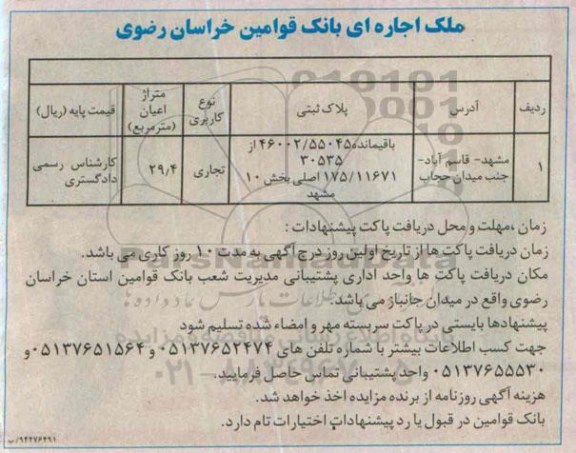 ملک اجاره ای بانک قوامین خراسان رضوی
ردیف آدرس پلاک ثبتی نوع کاربری متراژ اعیان (مترمربع) قیمت پایه (ریال)
۱ مشهد- قاسم آباد- جنب میدان حجاب باقیمانده ۴۶۰۰۲/۵۵۰۴۵ از ۳۰۵۳۵ ۱۷۵/۱۱۶۷۱ اصلی بخش ۱۰ مشهد تجاری ۲۹/۴ کارشناس رسمی دادگستری
زمان ،مهلت و محل دریافت پاکت پیشنهادات :
زمان دریافت پاکت ها از تاریخ اولین روز درج آگهی به مدت ۱۰ روز کاری می باشد.
مکان دریافت پاکت ها واحد اداری پشتیبانی مدیریت شعب بانک قوامین استان خراسان
رضوی واقع در میدان جانباز می باشد.
پیشنهادها بایستی در پاکت سربسته مهر و امضاء شده تسلیم شود
جهت کسب اطلاعات بیشتر با شماره تلفن های ۰۵۱۳۷۶۵۲۴۷۴ و ۰۵۱۳۷۶۵۱۵۶۴ و
۰۵۱۳۷۶۵۵۵۳۰ واحد پشتیبانی تماس حاصل فرمایند.
هزینه آگهی روزنامه از برنده مزایده اخذ خواهد شد.
بانک قوامین در قبول یا رد پیشنهادات اختیارات تام دارد.
۹۴۲۷۶۴۹۱/ب